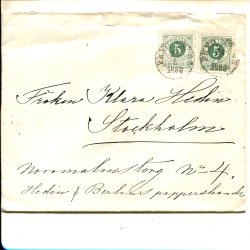 5 5
1886 1886
Fröken Klara Hedin
Stockholm
Norrmalmstorg No 4.
Hedin & Berlins pappershandel